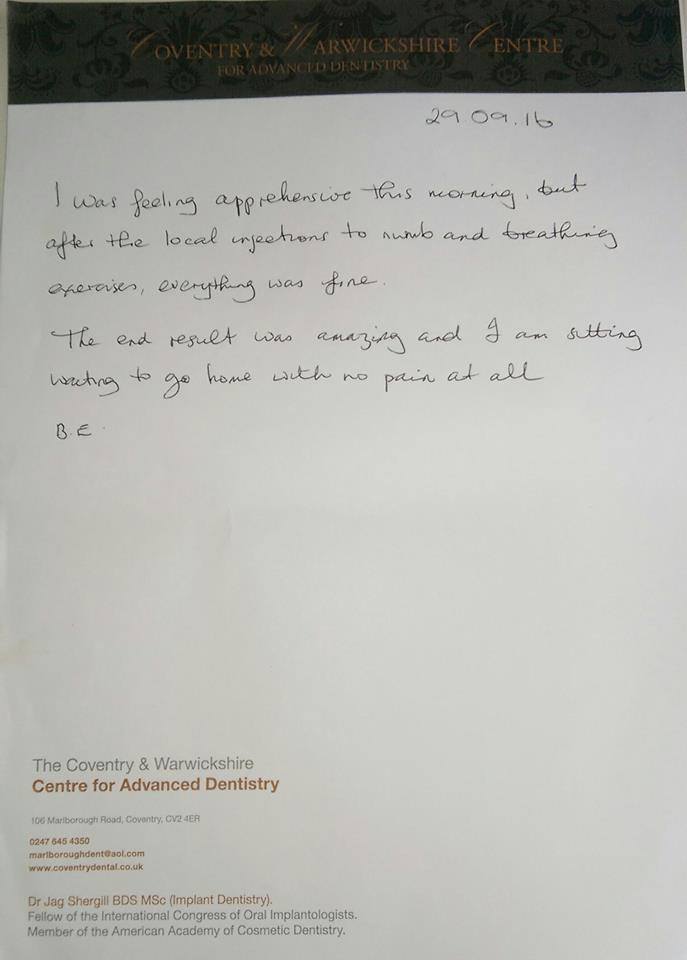 COVENTRY & WARWICKSHIRE CENTRE
FOR ADVANCED DENTISTRY
29.09.16
I was feeling apprehensive this morning, but
after the local injections to numb and breathing
exercises, everything was fine.
The end result was amazing and I am sitting
waiting to go home with no pain at all
B.E.
The Coventry & Warwickshire
Centre for Advanced Dentistry
106 Marlborough Road, Coventry, CV2 4ER
0247 645 4350
marlboroughdent@aol.com
www.coventrydental.co.uk
Dr Jag Shergill BDS MSc (Implant Dentistry).
Fellow of the International Congress of Oral Implantologists.
Member of the American Academy of Cosmetic Dentistry.